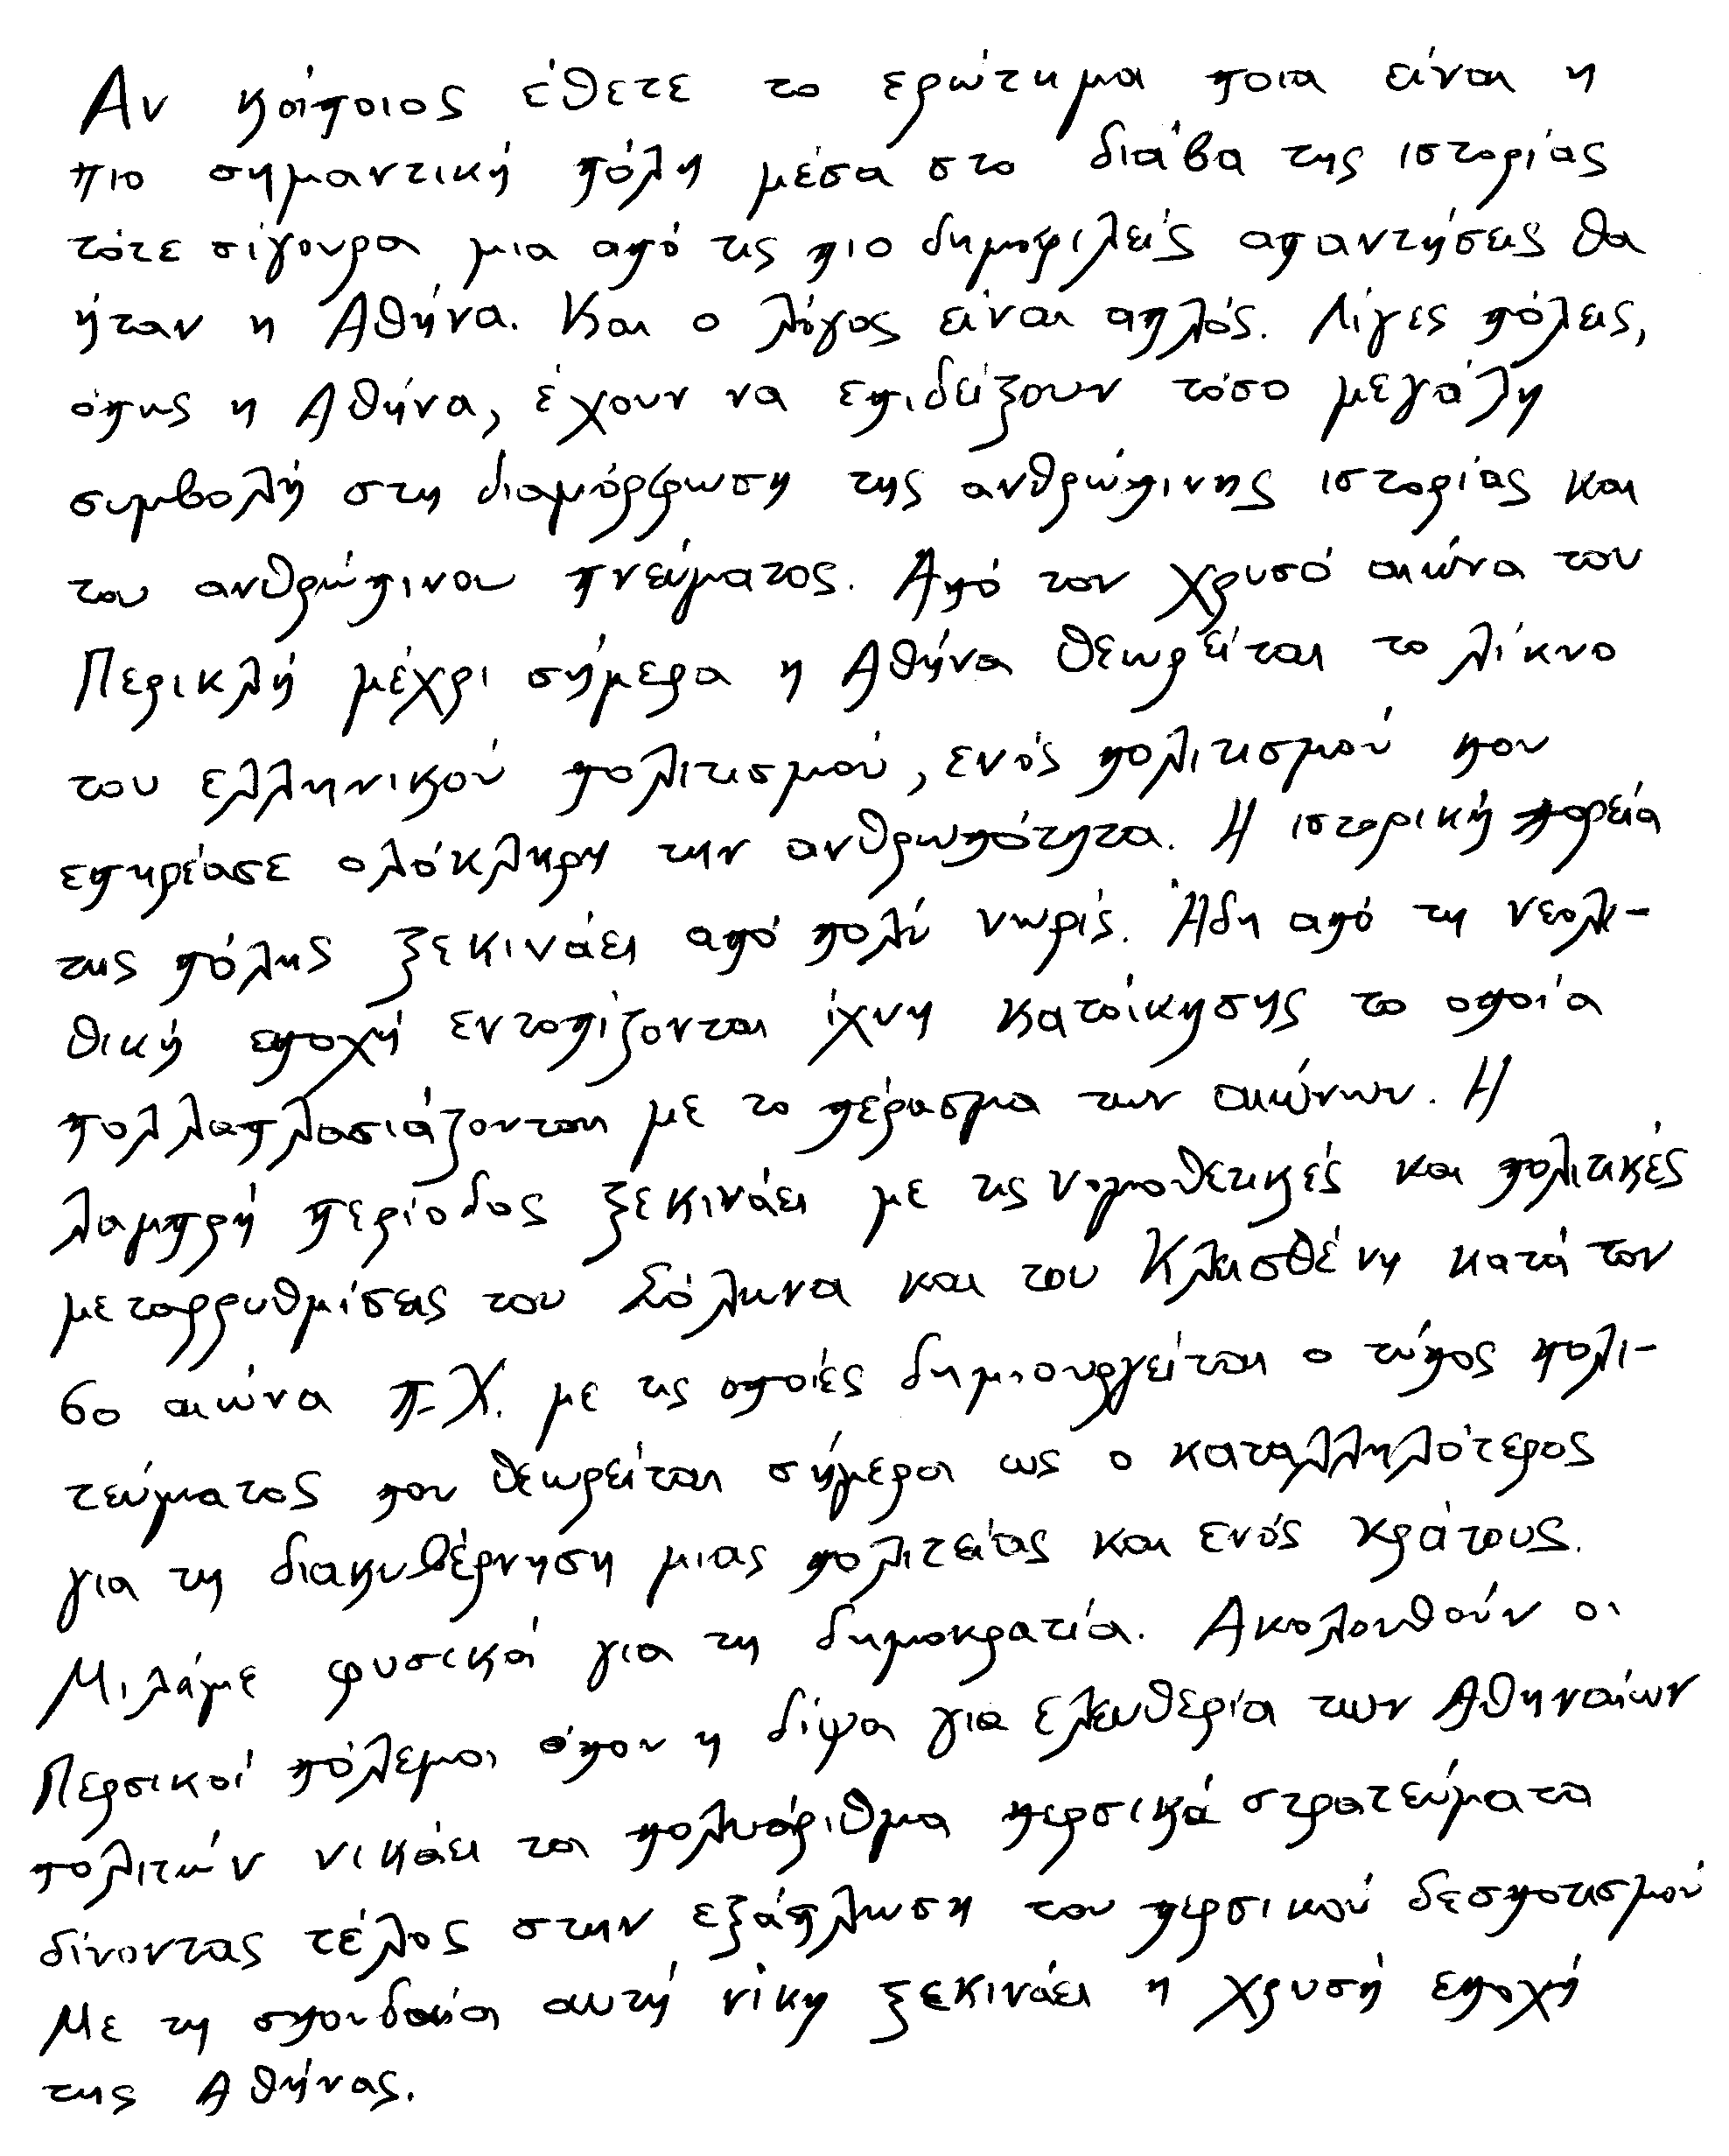 Αν κάποιος έθετε το ερώτημα ποια είναι η
πιο σημαντική πόλη μέσα στο διάβα της ιστορίας
τότε σίγουρα μια από τις πιο δημοφιλείς απαντήσεις θα
ήταν η Αθήνα. Και ο λόγος είναι απλός. Λίγες πόλεις,
όπως η Αθήνα, έχουν να επιδείξουν τόσο μεγάλη
συμβολή στη διαμόρφωση της ανθρώπινης ιστορίας και
του ανθρώπινου πνεύματος. Από τον χρυσό αιώνα του
Περικλή μέχρι σήμερα η Αθήνα θεωρείται το λίκνο
του ελληνικού πολιτισμού, ενός πολιτισμού που
επηρέασε ολόκληρη την ανθρωπότητα. Η ιστορική πορεία
της πόλης ξεκινάει από πολύ νωρίς. Ήδη από τη νεολι-
θική εποχή εντοπίζονται ίχνη κατοίκησης το οποία
πολλαπλασιάζονται με το πέρασμα των αιώνων. Η
λαμπρή περίοδος ξεκινάει με τις νομοθετικές και πολιτικές
μεταρρυθμίσεις του Σόλωνα και του Κλεισθένη κατά τον
6ο αιώνα π.Χ. με τις οποίες δημιουργείται ο τύπος πολι-
τεύματος που θεωρείται σήμερα ως ο καταλληλότερος
για τη διακυβέρνηση μιας πολιτείας και ενός κράτους.
Μιλάμε φυσικά για τη δημοκρατία. Ακολουθούν οι
Περσικοί πόλεμοι όπου η δίψα για ελευθερία των Αθηναίων
πολιτών νικάει τα πολυάριθμα περσικά στρατεύματα
δίνοντας τέλος στην εξάπλωση του περσικού δεσποτισμού
Με τη σπουδαία αυτή νίκη ξεκινάει η χρυσή εποχή
της Αθήνας.